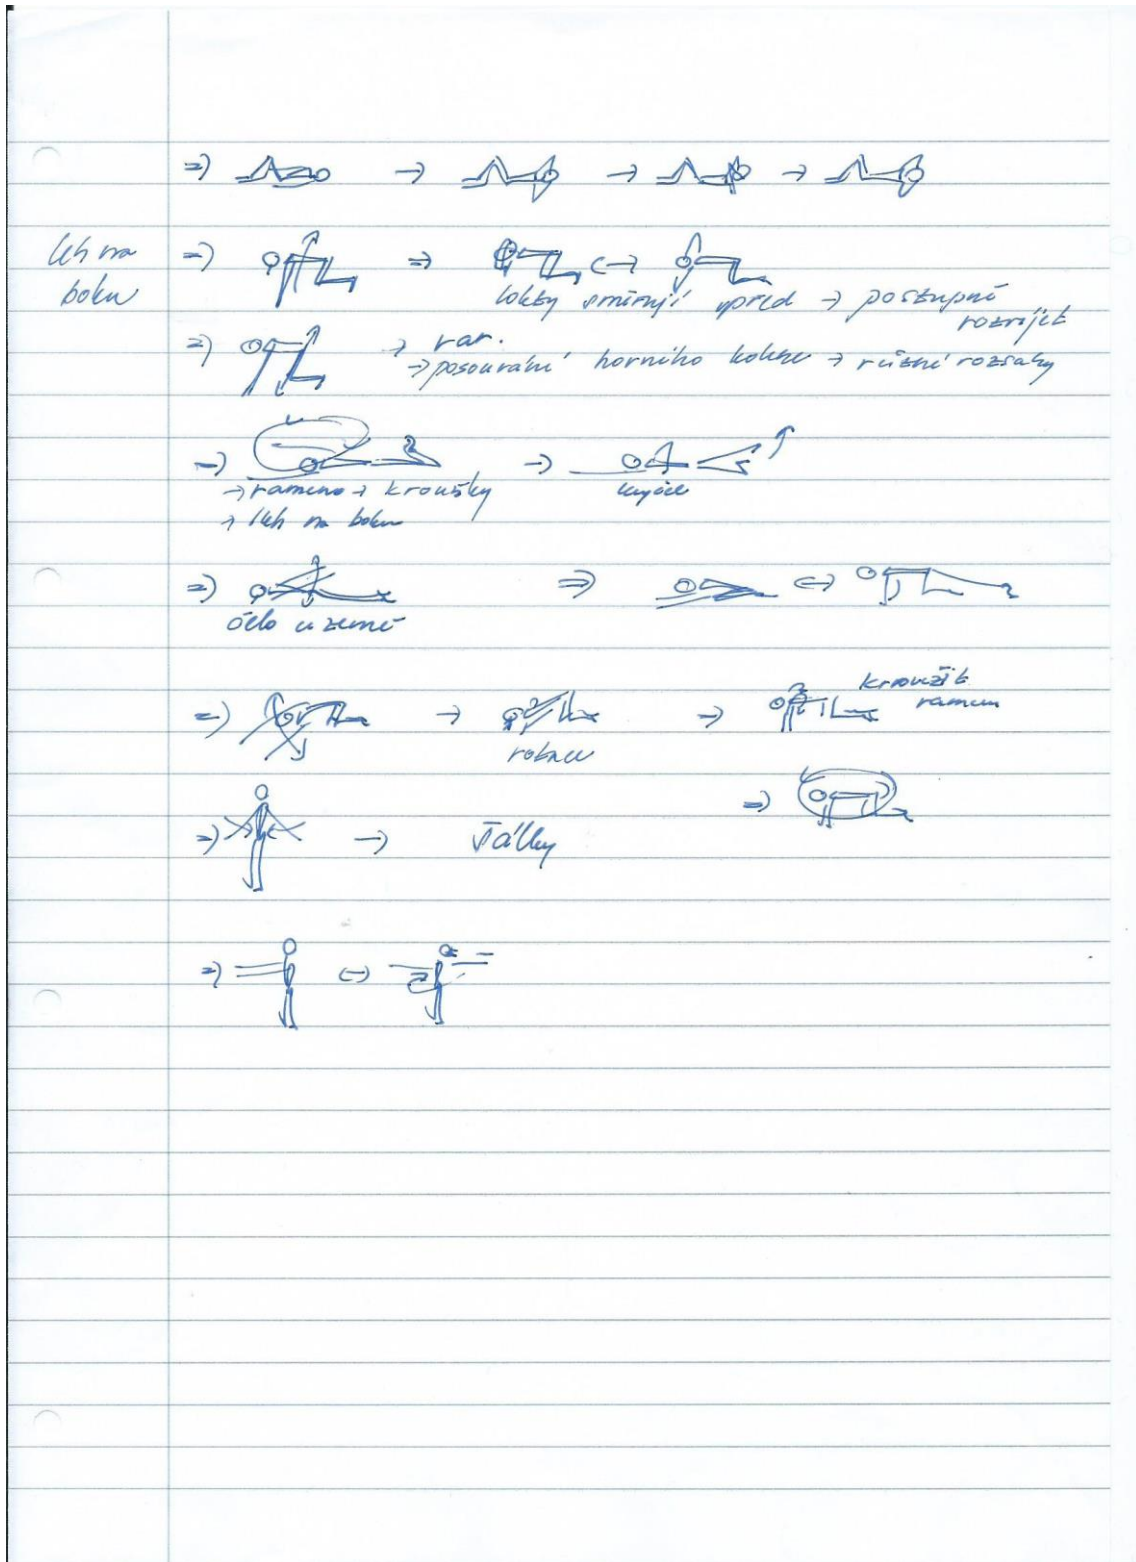 leh na
boku
lokty směřují vpřed → postupně
rozvíjet
→ var.
→ posouvání horního kolene → různé rozsahy
→ rameno → kroužky
→ leh na boku
čelo u země
kroužit
ramen
rotace
šálky